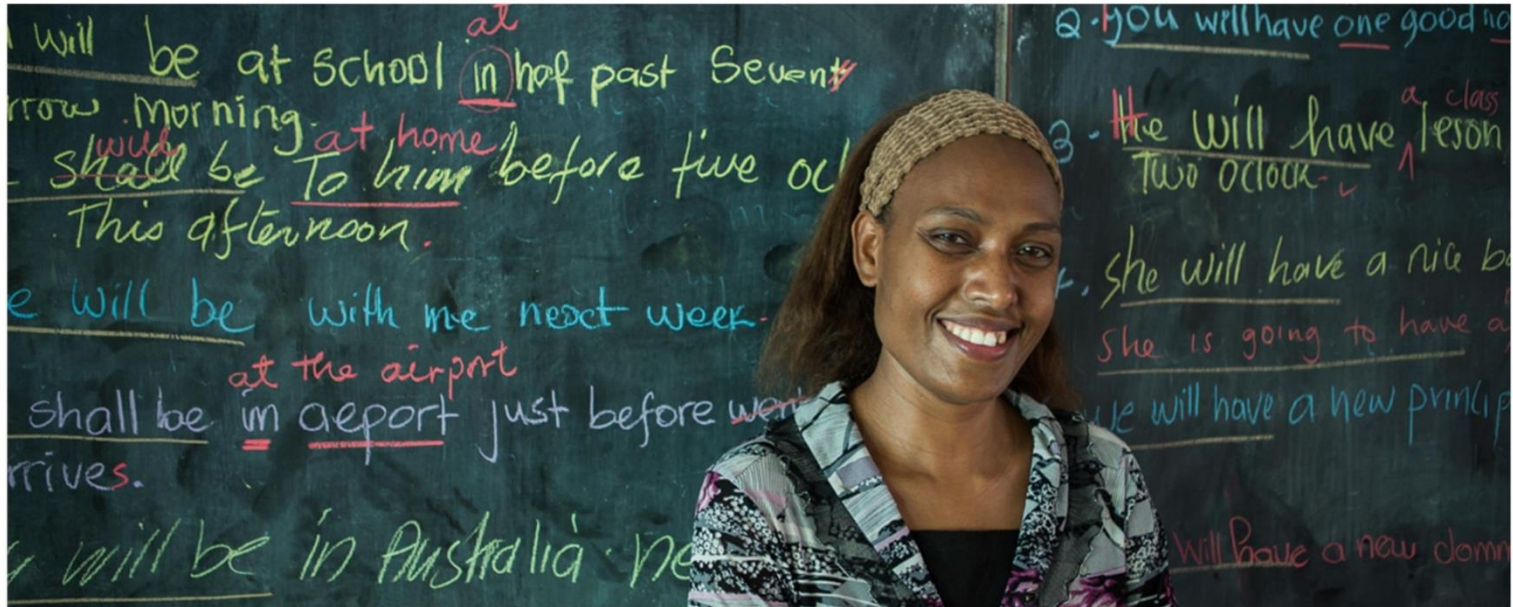 will be at school in haf past Seventy
at
rrow morning.
will at home
shall be To him before five ocl
This afternoon.
e will be with me next week.
at the airport
shall be in aeport just before went
rrives.
will be in Australia ne
2. you will have one good no
a class
3. He will have leson
Two oclock.
she will have a nice b
she is going to have a
we will have a new princip
will have a new domm